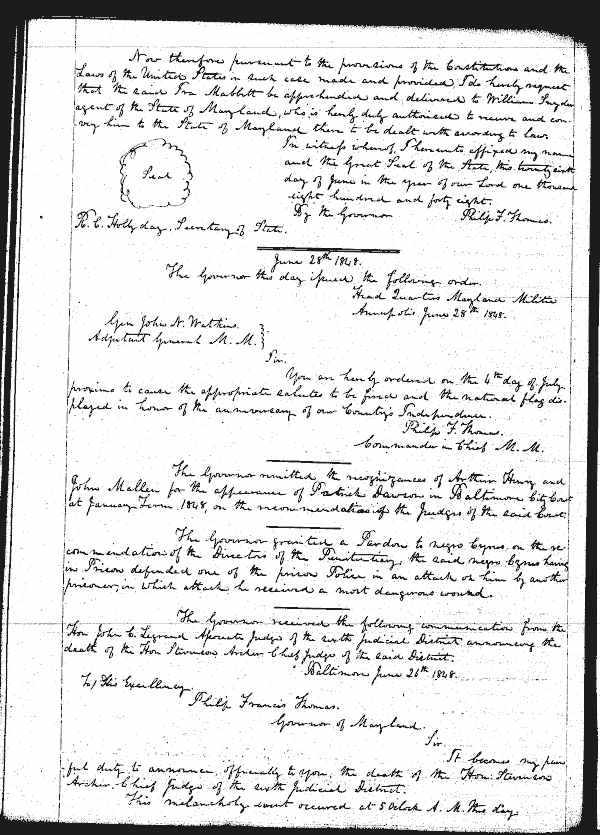 Now therefore pursuant to the provisions of the Constitution and the
Laws of the United States in such case made and provided, I do hereby request
that the said Ira Mabbitt be apprehended and delivered to William Snyder
agent of the State of Maryland, who is hereby duly authorised to receive and con-
vey him to the State of Maryland there to be dealt with according to law.
Seal
In witness whereof, I hereunto affixed my name
and the Great Seal of the State, this twenty sixth
day of June in the year of our Lord one thousand
eight hundred and forty eight.
By the Governor Philip F. Thomas.
R. C. Hollyday, Secretary of State.
June 28th 1848.
The Governor this day issued the following order.
Head Quarters Mayland Militia
Annapolis June 28th 1848.
Gen John N. Watkins
Adjutant General M. M.
Sir.
You are hereby ordered on the 4th day of July
proximo to cause the appropriate salutes to be fired and the national flag dis-
played in honor of the anniversary of our Country's Independence.
Philip F. Thomas.
Commander in Chief M. M.
The Governor remitted the recognizances of Arthur Henry and
John Mallen for the appearance of Patrick Dawson in Baltimore City Court
at January Term 1848, on the recommendation of the Judges of the said Court.
The Governor granted a Pardon to negro Cyrus, on the re-
commendation of the Directors of the Penitentiary, the said negro Cyrus having
in Prison defended one of the prison Police in an attack on him by another
prisoner, in which attack he received a most dangerous wound.
The Governor received the following communication from the
Hon John C. Legrand Associate Judge of the sixth Judicial District announcing the
death of the Hon Stevenson Archer Chief Judge of the said District.
Baltimore June 26th 1848.
To / His Excellency
Philip Francis Thomas.
Governor of Maryland.
Sir.
It becomes my pain
ful duty to announce, officially to you, the death of the Hon. Stevenson
Archer, Chief Judge of the sixth Judicial District.
This melancholy event occured at 5 Oclock A. M. this day